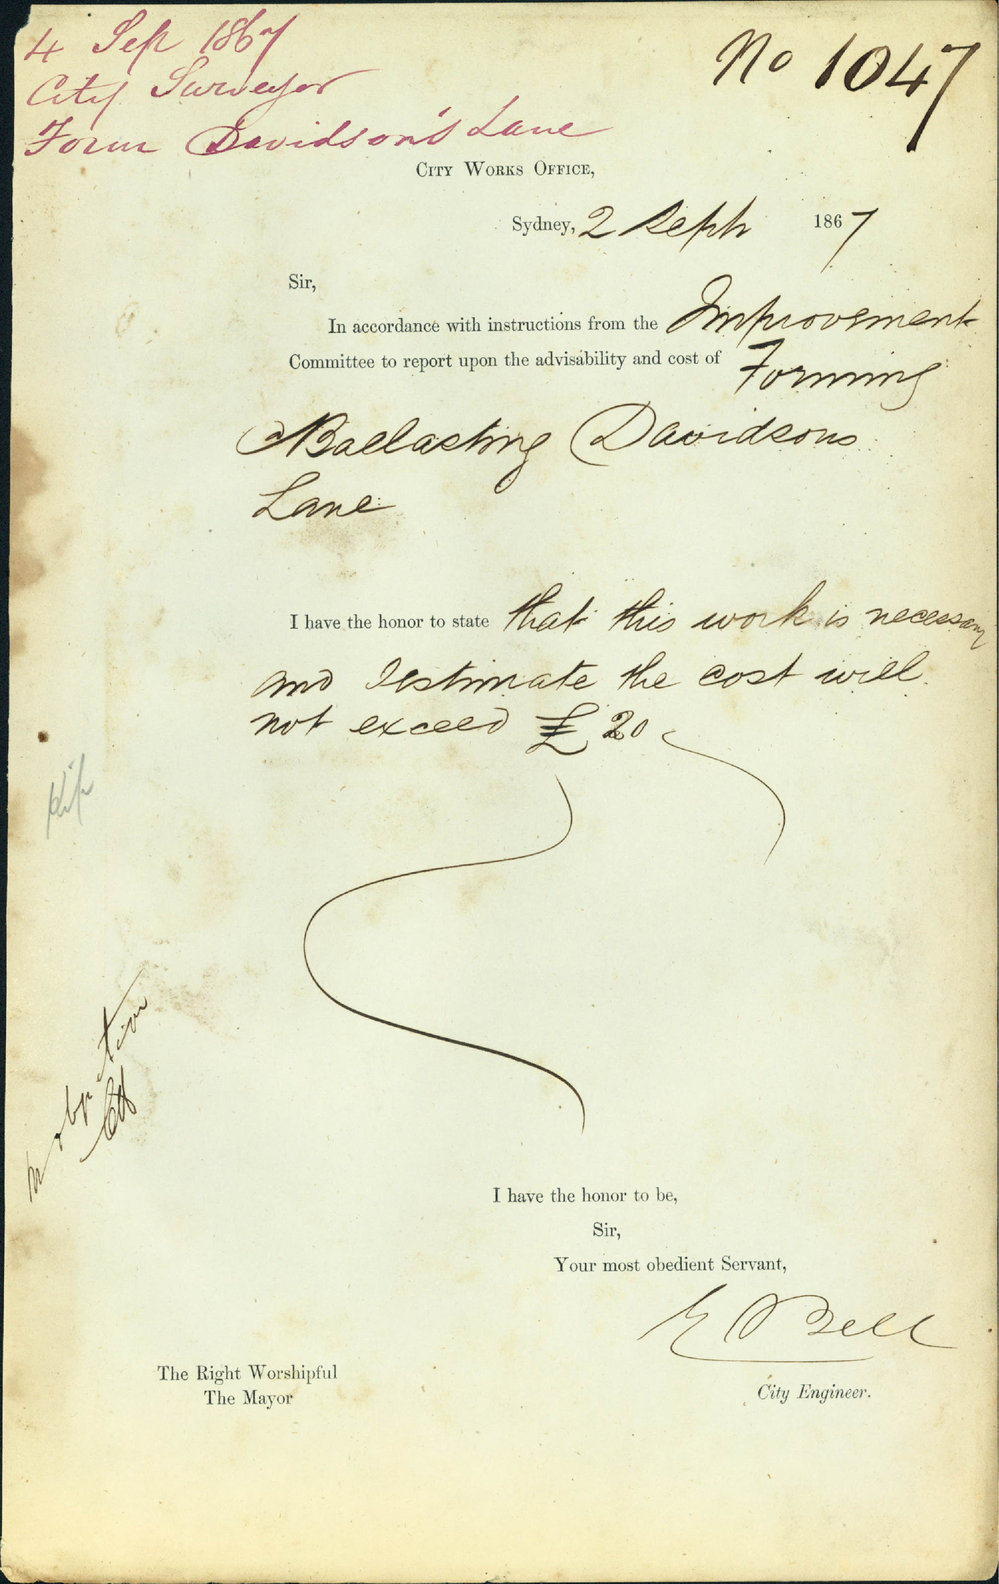 4 Sep 1867
City Surveyor
Form Davidson's Lane
No 1047
CITY WORKS OFFICE,
Sydney, 2 Septh 1867
Sir,
In accordance with instructions from the Improvement
Committee to report upon the advisability and cost of Forming
Ballasting Davidsons
Lane
I have the honor to state that this work is necessary
and I estimate the cost will
not exceed £20
I have the honor to be,
Sir,
Your most obedient Servant,
E Bell
The Right Worshipful
The Mayor
City Engineer.